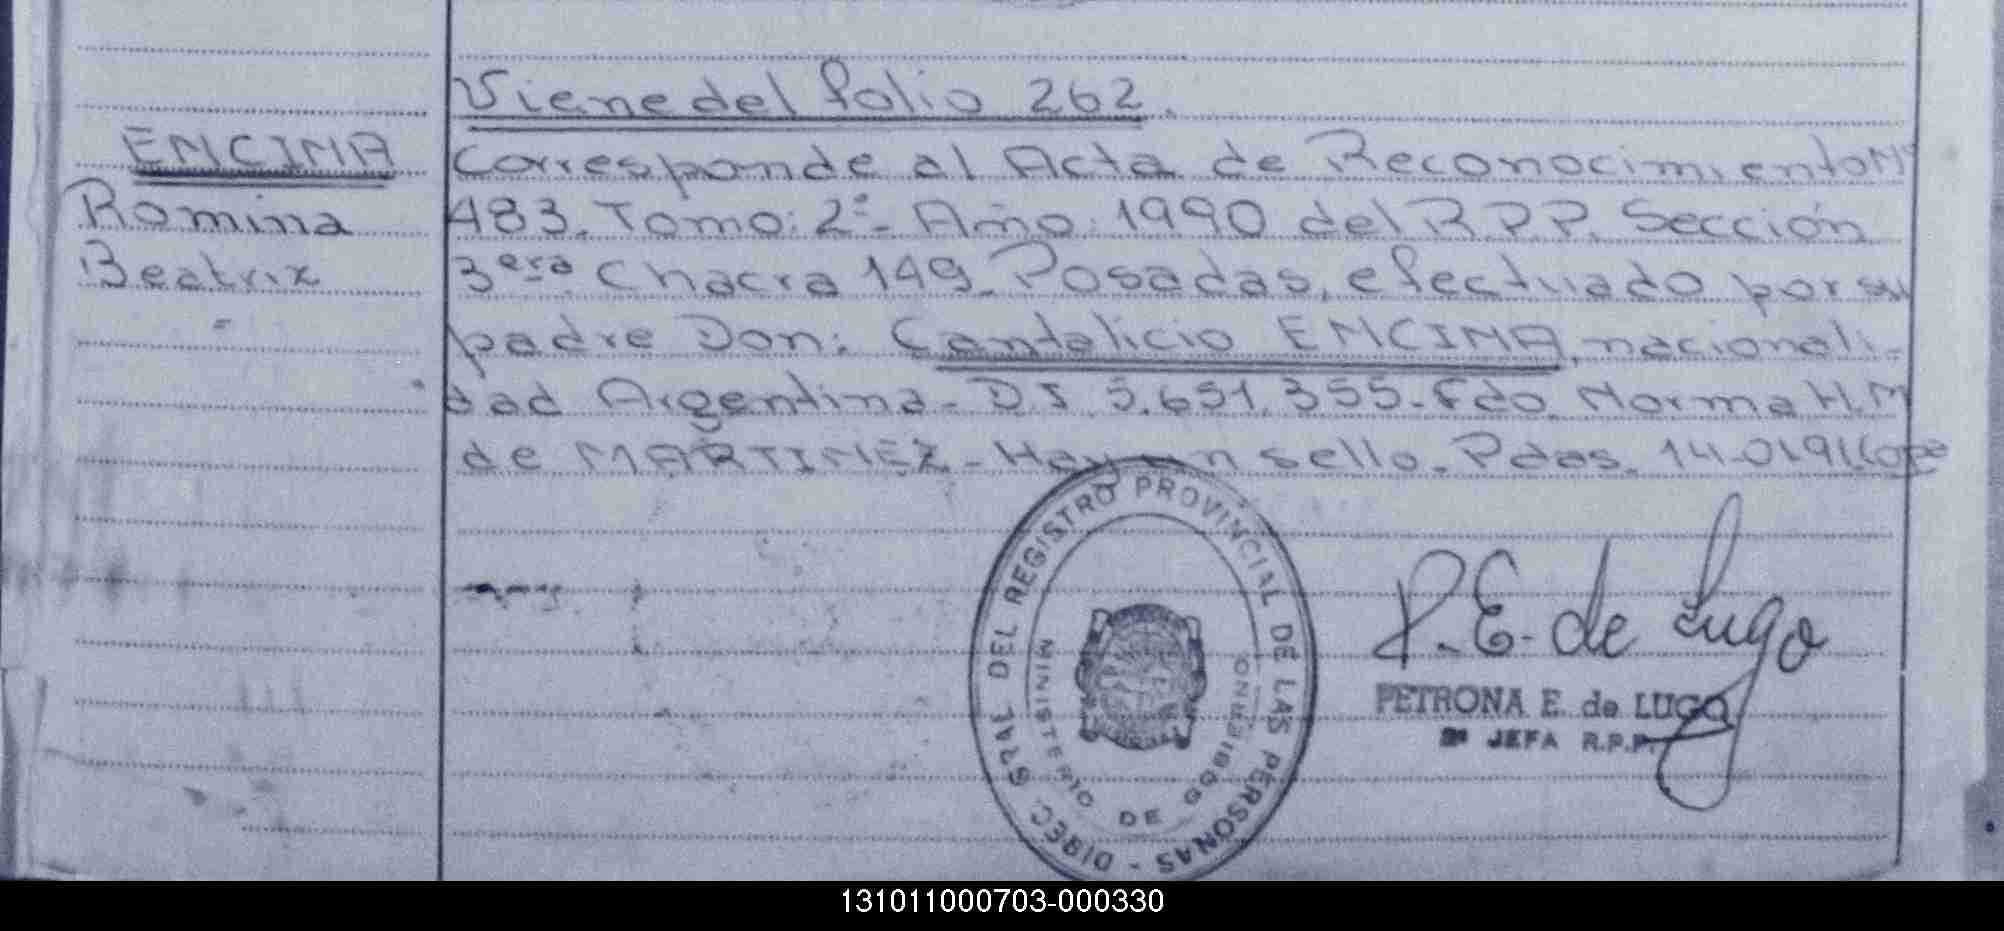 Viene del folio 262.
ENCINA
Romina
Beatriz
Corresponde al Acta de Reconocimiento Nº
483. Tomo: 2º- Año: 1990 del R.P.P. Sección
3era. Chacra 149- Posadas, efectuado por su
padre Don: Candalicio ENCINA, nacionali-
dad Argentina- D.I. 5.651.355- Fdo. Norma H.M
de MARTINEZ- Hay un sello. Pdas. 14-01-91
DIREC. GRAL. DEL REGISTRO PROVINCIAL DE LAS PERSONAS -
MINISTERIO DE GOBIERNO
P.E. de Lugo
PETRONA E. de LUGO
2ª JEFA R.P.P.
131011000703-000330